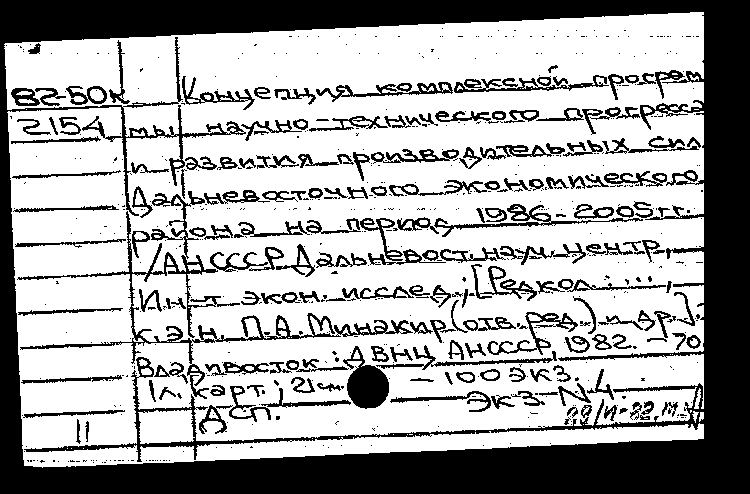 82-50к Концепция комплексной програм
2154 мы научно-технического прогресса
и развития производительных сил
Дальневосточного экономического
района на период 1986-2005 гг.
/АН СССР Дальневост. науч. центр,
Ин-т экон. исслед.; [Редкол.: ...,
к.э.н. П.А. Минакир (отв. ред.) и др.].-
Владивосток: ДВНЦ АН СССР, 1982. - 70
1 л. карт.; 21 см. - 100 экз.
ДСП. Экз. N 4.
11